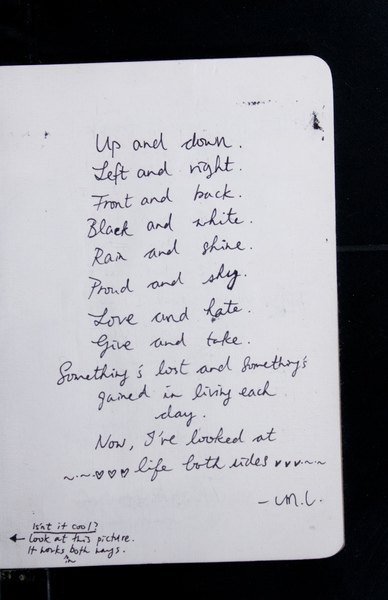 Up and down.
Left and right.
Front and back.
Black and white.
Rain and shine.
Proud and shy.
Love and hate.
Give and take.
Something's lost and something's
gained in living each
day.
Now, I've looked at
~·~♡♡♡ life both sides ♥♥♥~~
– M.L.
Isn't it cool?
← Look at this picture.
It works both ways.
in